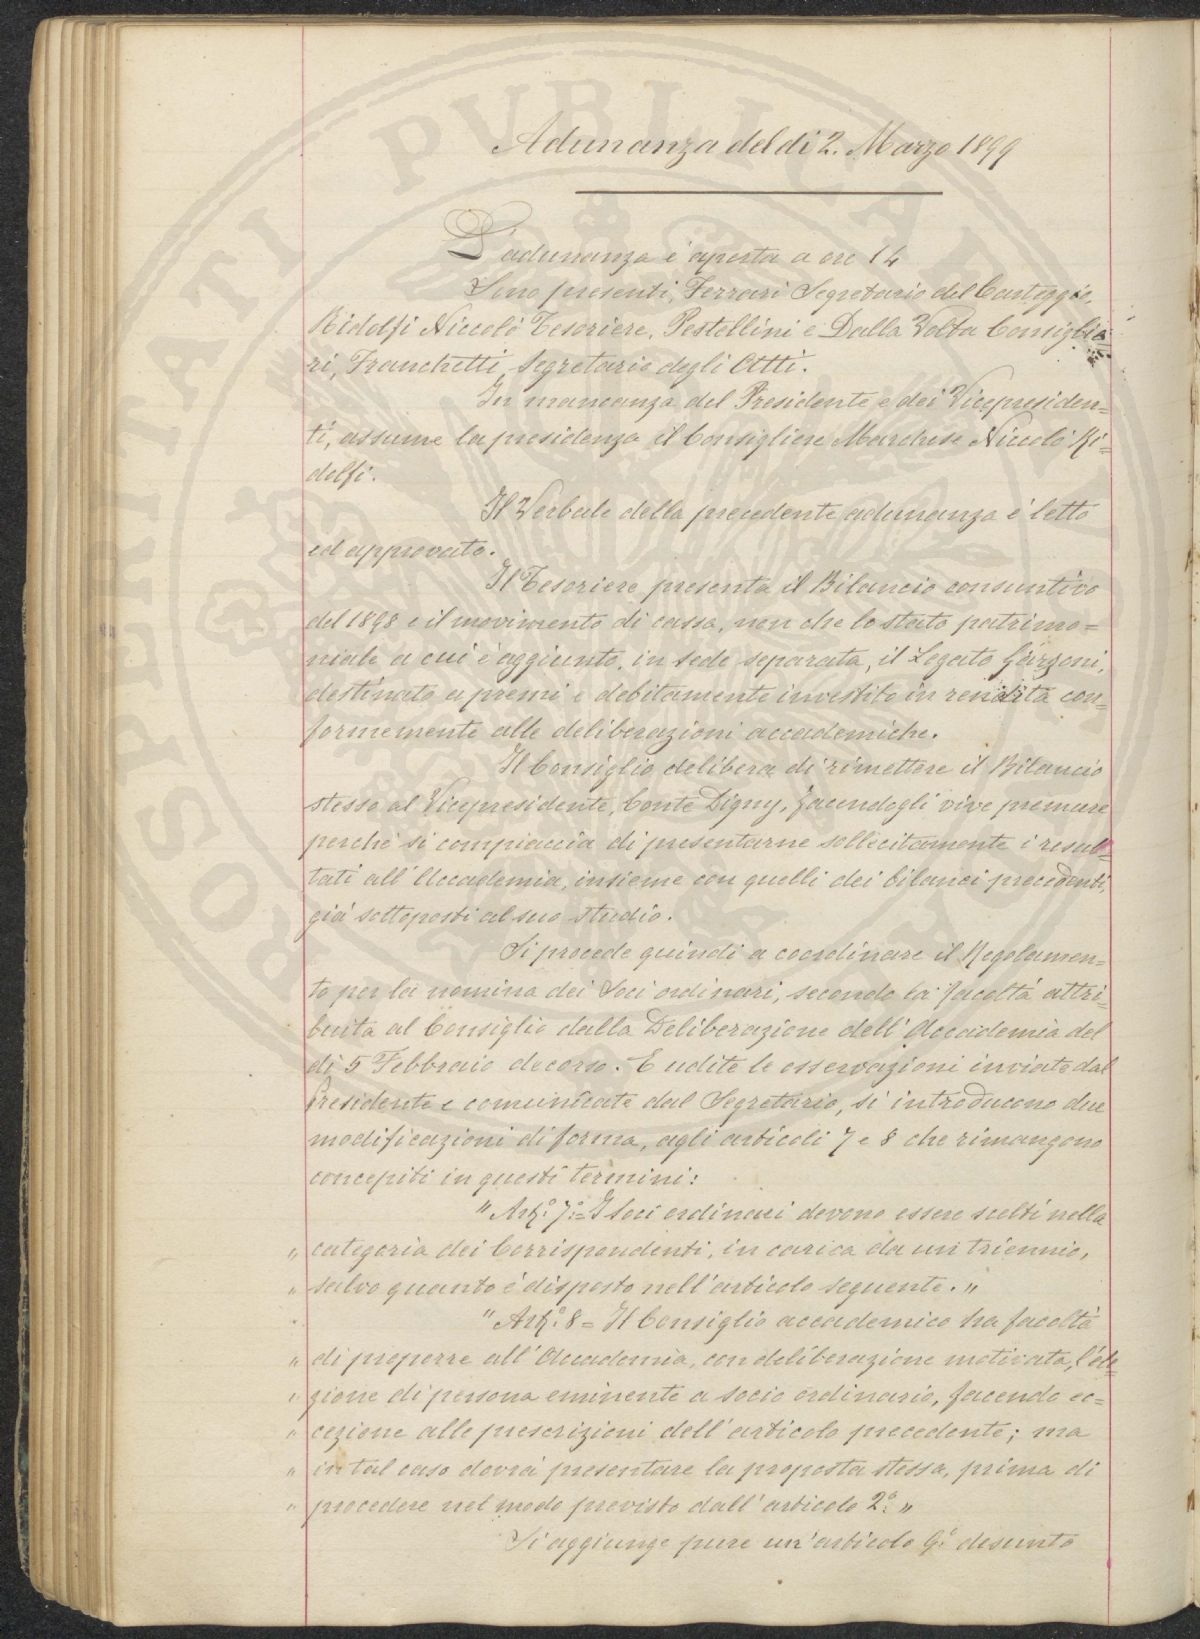 Adunanza del dì 2. Marzo 1899
L'adunanza è aperta a ore 14
Sono presenti, Ferrari Segretario del Carteggio,
Ridolfi Niccolò Tesoriere, Pestellini e Dalla Volta Consiglie=
ri, Franchetti, Segretario degli Atti.
In mancanza del Presidente e dei Vicepresiden=
ti, assume la presidenza il Consigliere Marchese Niccolò Ri=
dolfi.
Il Verbale della precedente adunanza è letto
ed approvato.
Il Tesoriere presenta il Bilancio consuntivo
del 1898 e il movimento di cassa, non che lo stato patrimo=
niale a cui è aggiunto, in sede separata, il Legato Garzoni,
destinato a premi e debitamente investito in rendita con=
formemente alle deliberazioni accademiche.
Il Consiglio delibera di rimettere il Bilancio
stesso al Vicepresidente, Conte Digny, facendogli vive premure
perchè si compiaccia di presentarne sollecitamente i resul=
tati all'Accademia, insieme con quelli dei bilanci precedenti,
già sottoposti al suo studio.
Si procede quindi a coordinare il Regolamen=
to per la nomina dei Soci ordinari, secondo la facoltà attri=
buita al Consiglio dalla Deliberazione dell'Accademia del
dì 5 Febbraio decorso. E udite le osservazioni inviate dal
Presidente e comunicate dal Segretario, si introducono due
modificazioni di forma, agli articoli 7 e 8 che rimangono
concepiti in questi termini:
" Art.º 7.º = I Soci ordinari devono essere scelti nella
" categoria dei Corrispondenti, in carica da un triennio,
" salvo quanto è disposto nell'articolo seguente. "
" Art.º 8 = Il Consiglio accademico ha facoltà
" di proporre all'Accademia, con deliberazione motivata, l'ele=
" zione di persona eminente a socio ordinario, facendo ec=
" cezione alle prescrizioni dell'articolo precedente; ma
" in tal caso dovrà presentare la proposta stessa, prima di
" procedere nel modo previsto dall'articolo 2.º "
Si aggiunge pure un'articolo 9.º desunto
PROSPERITATI PUBLICAE